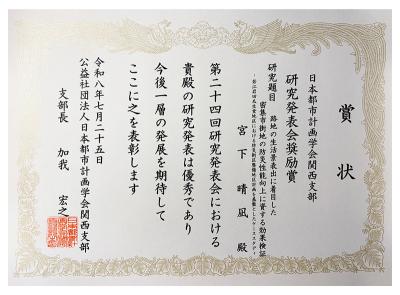 賞状
日本都市計画学会関西支部
研究発表会奨励賞
研究題目
路地の生活景表出に着目した
密集市街地の防災性能向上に資する効果検証
宮下晴凪 殿
第二十四回研究発表会における
貴殿の研究発表は優秀であり
今後一層の発展を期待して
ここに之を表彰します
令和八年七月二十五日
公益社団法人日本都市計画学会関西支部
支部長 加我 宏之